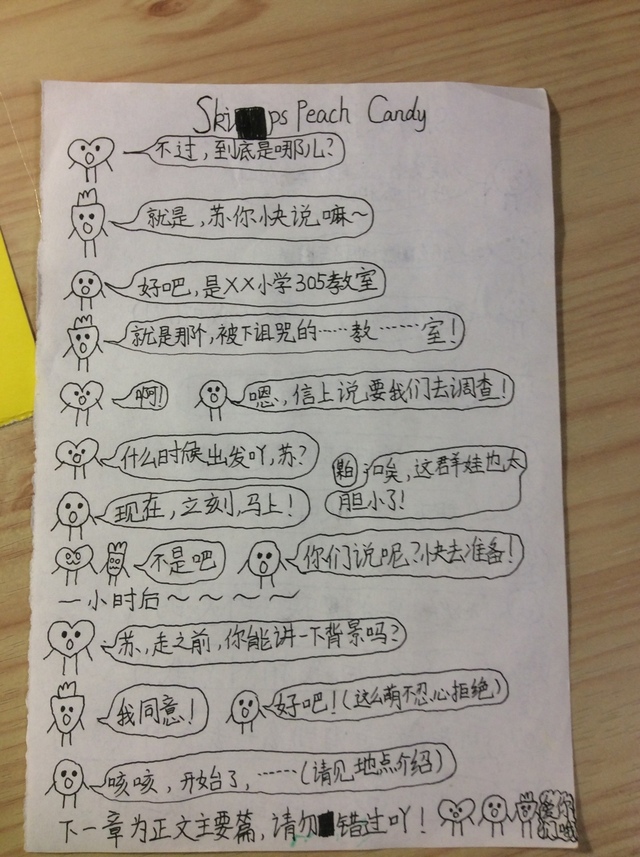 Ski ps Peach Candy
不过，到底是哪儿？
就是，苏你快说嘛～
好吧，是XX小学305教室
就是那个，被下诅咒的……教……室！
啊！ 嗯，信上说要我们去调查！
什么时候出发吖，苏？
唉，这群娃也太胆小了！
现在，立刻，马上！
不是吧 你们说呢？快去准备！
一小时后～～～～～
苏，走之前，你能讲一下背景吗？
我同意！ 好吧！（这么萌不忍心拒绝）
咳咳，开始了，……（请见地点介绍）
下一章为正文主要篇，请勿错过吖！